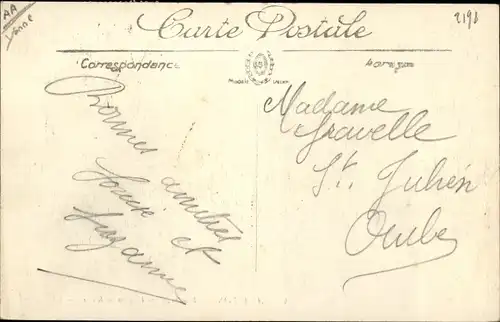 AA
Yonne
Carte Postale
2191
Correspondance
Adresse
Madame
Gravelle
St. Julien
Aube
Bonnes
amitiés
Louise et
Suzanne